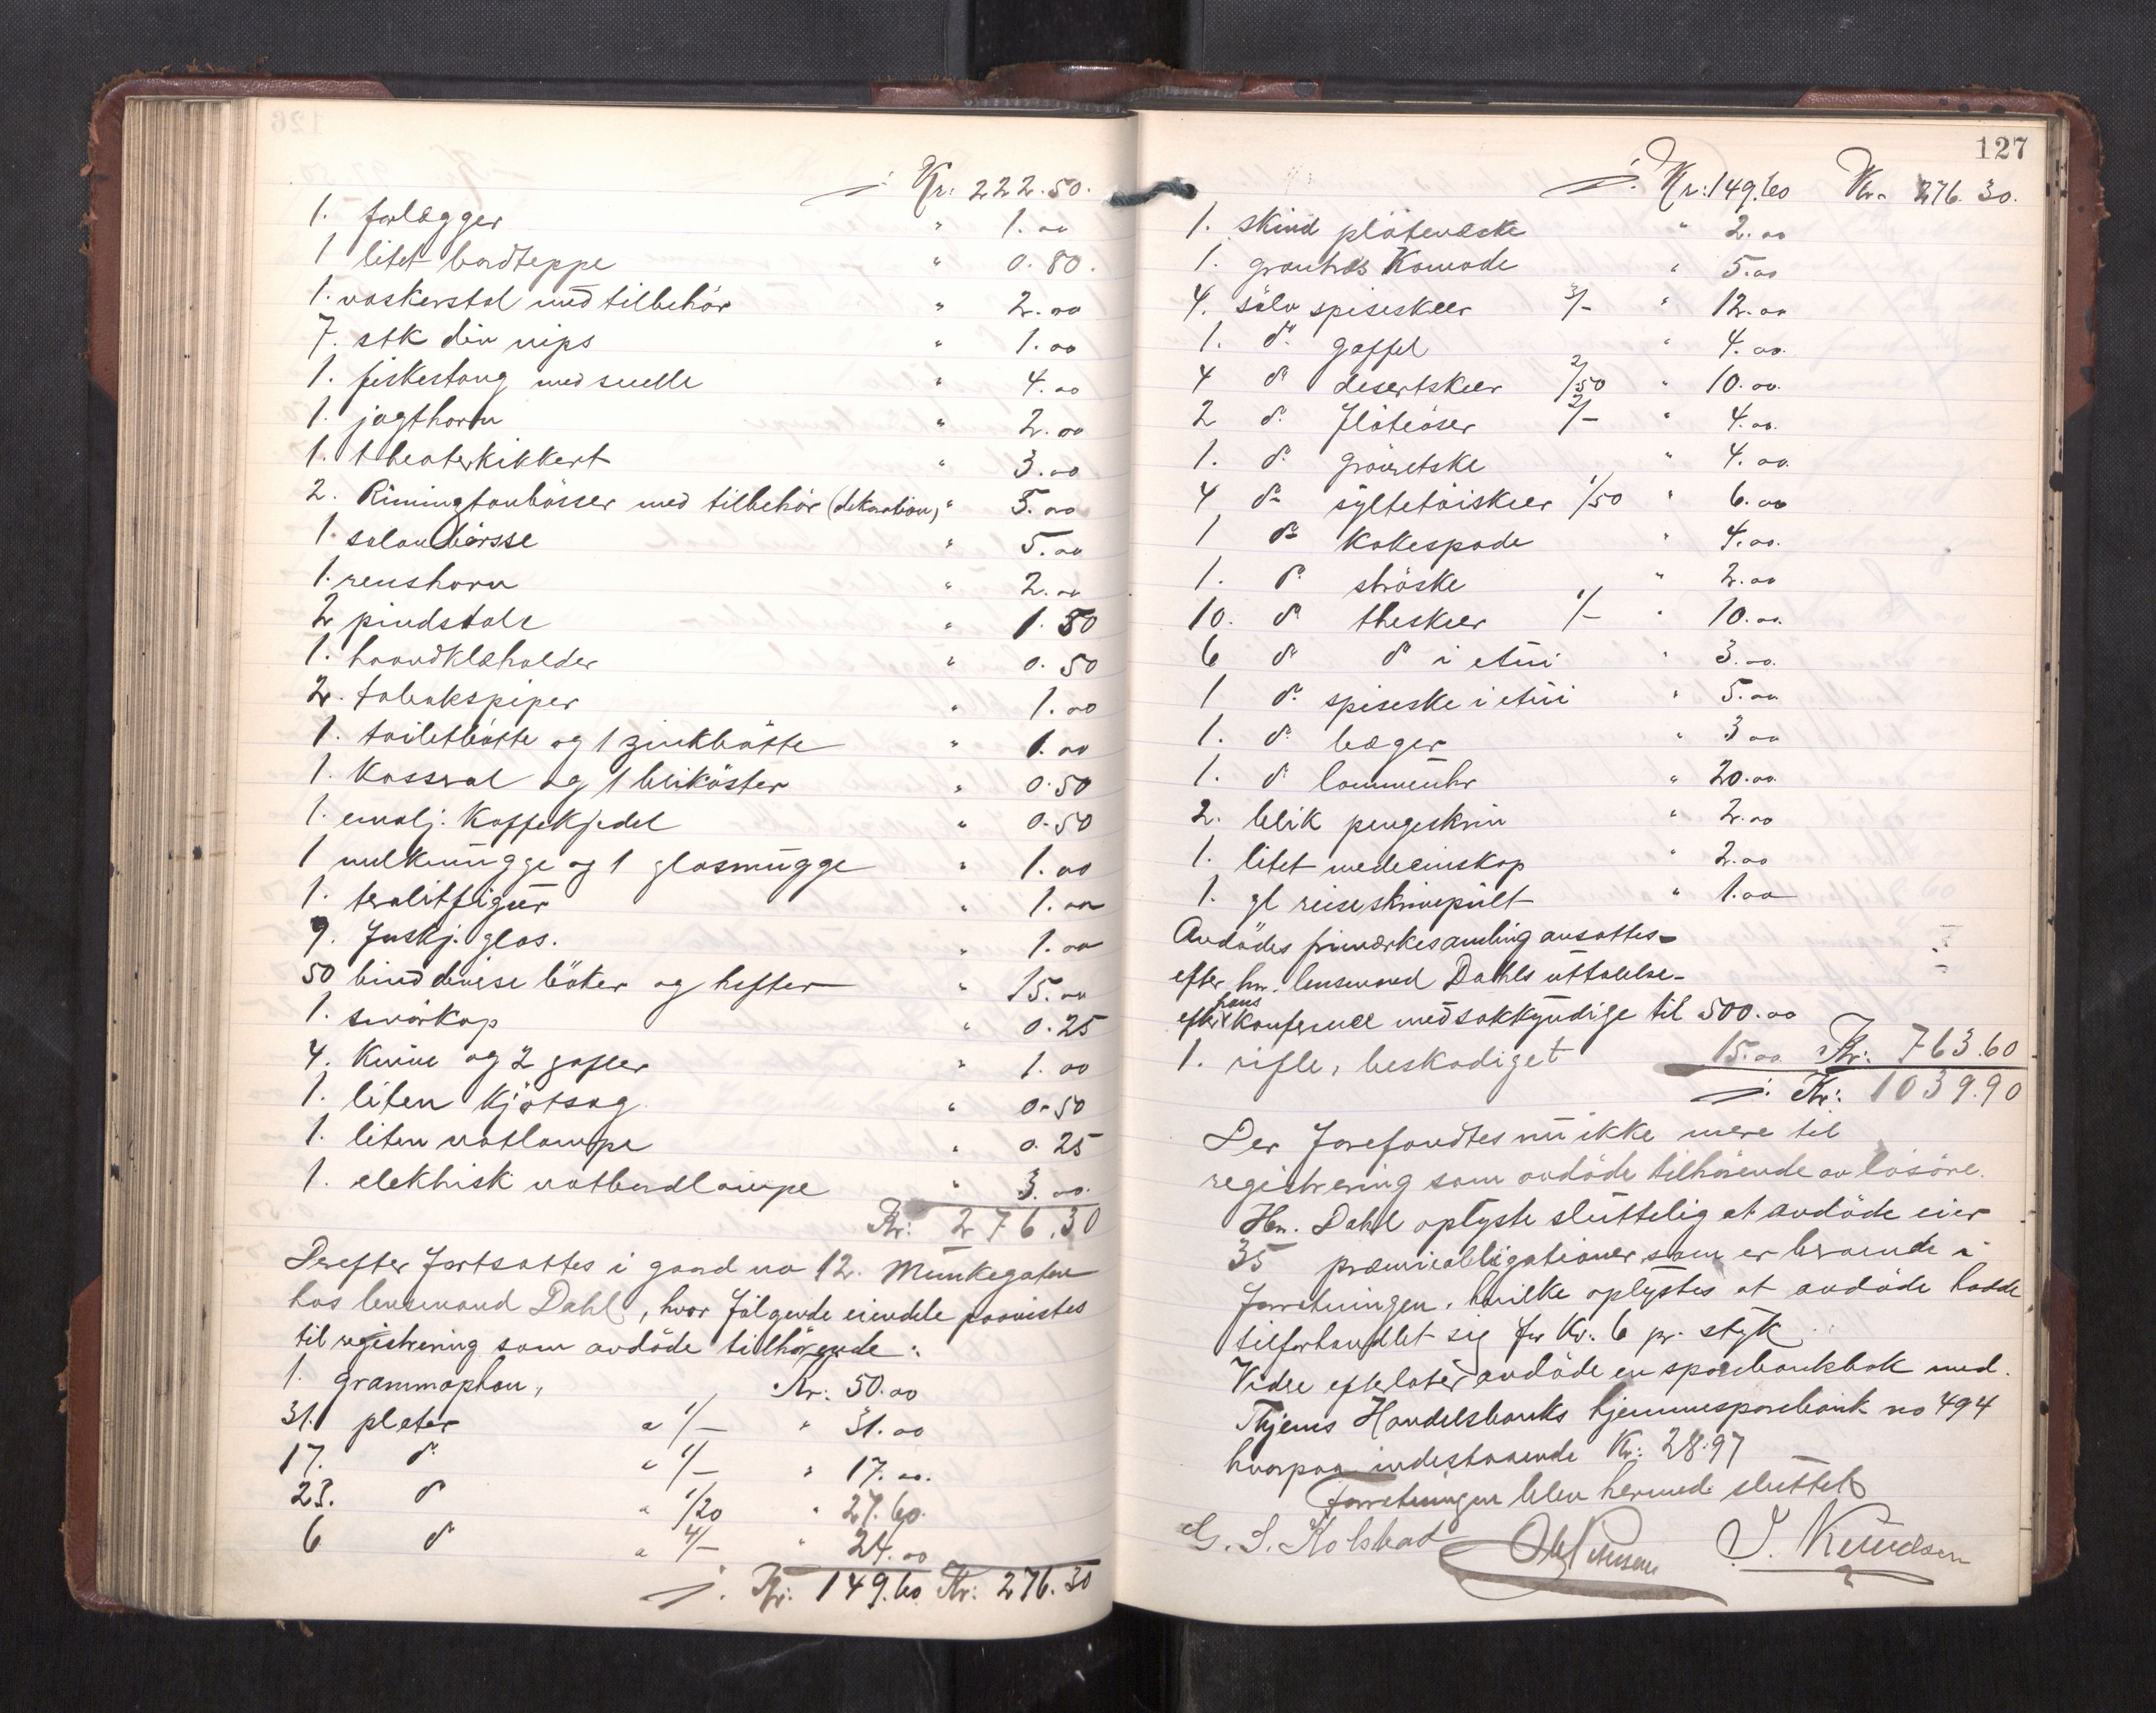 Kr: 222.50.
1. forlægger " 1.00
1 litet bordteppe " 0.80.
1. vaskerstol med tilbehör " 2.00
7. stk div nips " 1.00
1. fiskestang med snelle " 4.00
1. jagthorn " 2.00
1. theaterkikkert " 3.00
2. Rimingtonbösser med tilbehör (dekoration) " 5.00
1. salonbörsse " 5.00
1. renshorn " 2.00
2 pindstole " 1.50
1. haandklæholder " 0.50
2. tobakspiper " 1.00
1. toiletbötte og 1 zinkbötte " 1.00
1. Kasserol og 1 bliköster " 0.50
1. emalj. Kaffekjedel " 0.50
1 melkmugge og 1 glasmugge " 1.00
1. teralitfigur " 1.00
9. Juskj. glas. " 1.00
50 bind deverse böker og hefter " 15.00
1. smörkop " 0.25
4. Knive og 2 gafler " 1.00
1. liten Kjötsag " 0.50
1. liten natlampe " 0.25
1. elektrisk natbordlampe " 3.00.
Kr: 276.30
Derefter fortsattes i gaard no 12. Munkegaten
hos lensmand Dahl, hvor fölgende eiendele paavistes
til registrering som avdöde tilhörende:
1. grammophon, Kr: 50.00
31. plater a 1/- " 31.00
17. do " 1/- " 17.00.
23. do " 1/20 " 27.60.
6 do a 4/- " 24.00
Kr: 149.60 Kr: 276.30
127
Kr: 149.60 Kr: 276.30.
1. skind plötevæske " 2.00
1. grantræs Komode " 5.00
4. sölv spiseskeer 3/- " 12.00
1. do gaffel " 4.00.
4 do desertskeer 2/50 " 10.00.
2 do flöteöser 2/- " 4.00.
1. do grönetske " 4.00.
4 do syltetöiskeer 1/50 " 6.00
1 do Kakespade " 4.00.
1. do ströske " 2.00
10. do theskeer 1/- " 10.00.
6 do do i etui " 3.00.
1 do spiseske i etui " 5.00
1. do bæger " 3 00
1. do lommeuhr " 20.00.
2. blik pengeskrin " 2.00
1. litet medecinskap " 2.00
1. gl reiseskrivepult " 1.00
Avdödes frimærkesamling ansattes
efter hr. lensmand Dahls uttalelse
efter hans Konferense med sakkyndige til 500.00
1. rifle, beskadiget 15.00 Kr: 763.60
Kr: 1039.90
Der forefandtes nu ikke mere til
registrering som avdöde tilhörende av lösöre.
Hr. Dahl oplyste sluttelig at avdöde eier
35 præmieobligationer som er beroende i
forretningen, hvilke oplystes at avdöde hadde
tilforhandlet sig for Kr. 6 pr. styk
Videre efterlater avdöde en sparebankbok med.
Thjems Handelsbanks hjemmesparebank no 494
hvorpaa indestaaende Kr: 28.97
Forretningen blev hermed sluttet
G. S. Kolstad J. Knudsen